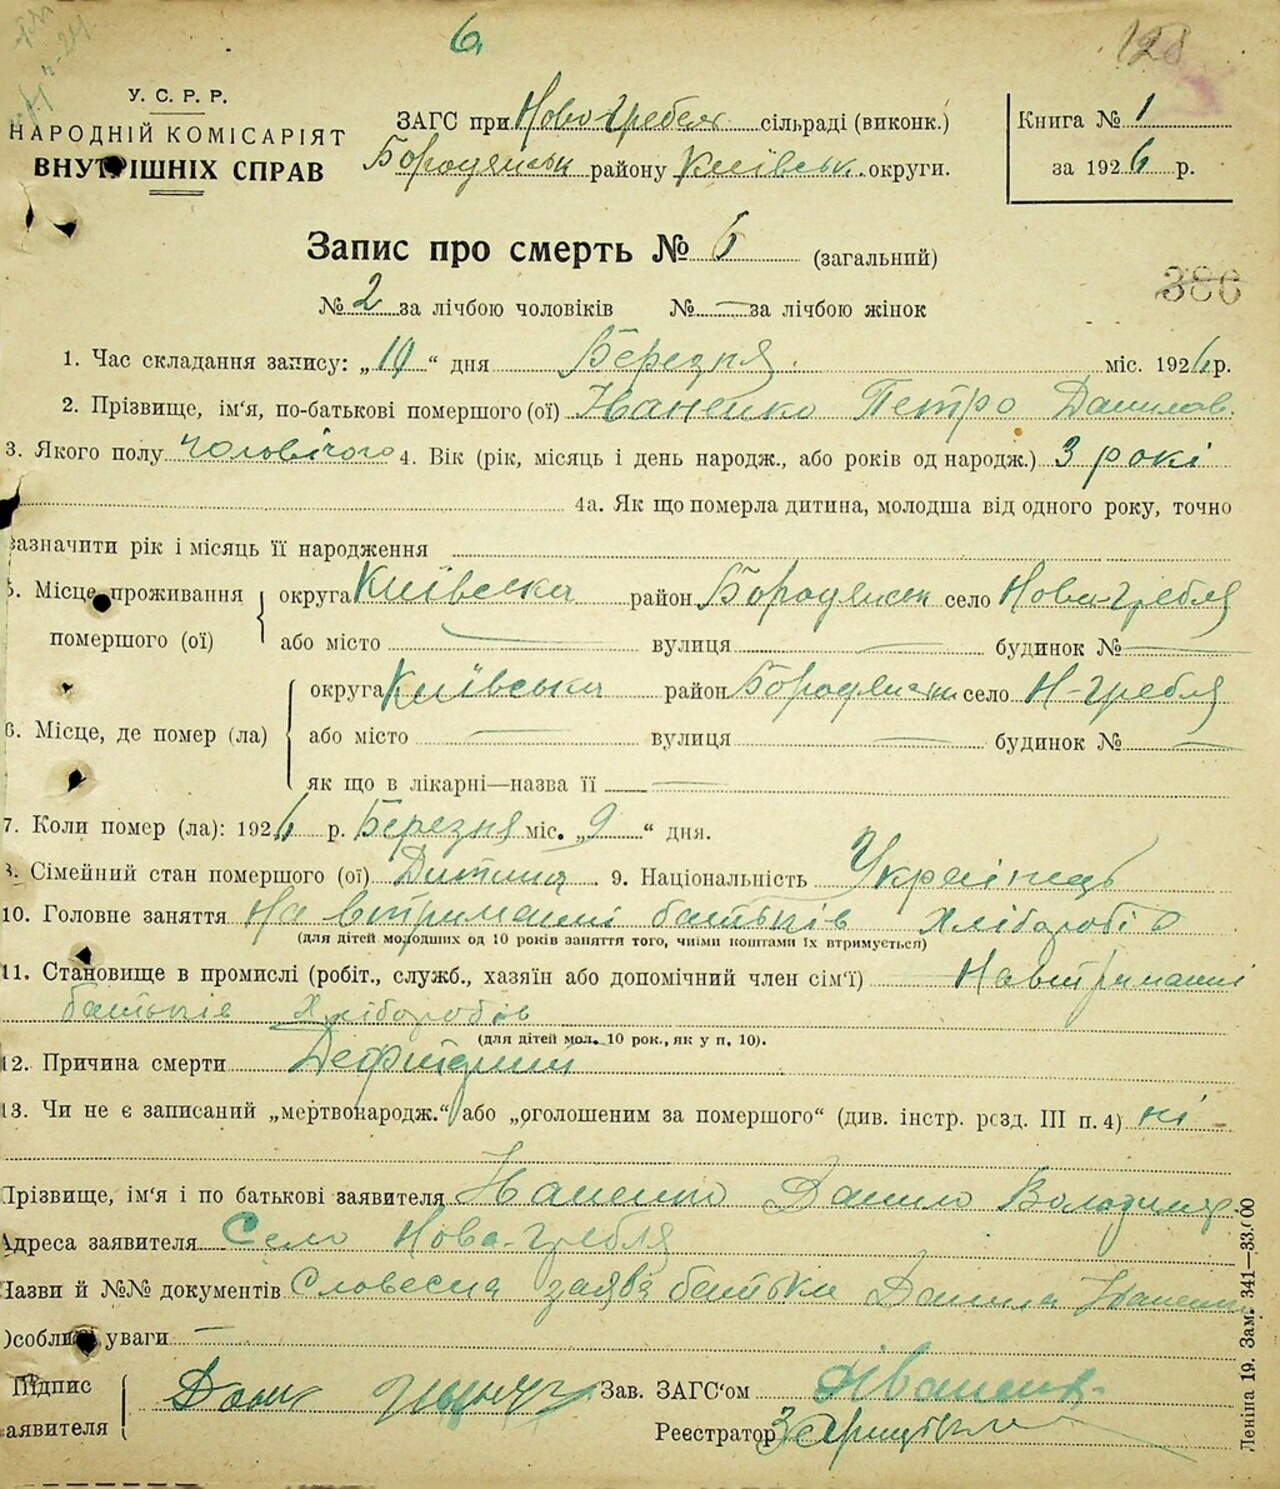 6
128
У. С. Р. Р.
НАРОДНІЙ КОМІСАРІЯТ
ВНУТРІШНІХ СПРАВ
ЗАГС при Ново-Гребель сільраді (виконк.)
Бородянськ району Київськ. округи.
Книга № 1
за 1926 р.
Запис про смерть № 6 (загальний)
386
№ 2 за лічбою чоловіків № — за лічбою жінок
1. Час складання запису: „10“ дня Березня міс. 1926 р.
2. Прізвище, ім‘я, по-батькові помершого (ої) Іваненко Петро Данилов.
3. Якого полу чоловічого 4. Вік (рік, місяць і день народж., або років од народж.) 3 рокі
4а. Як що померла дитина, молодша від одного року, точно
зазначити рік і місяць її народження
5. Місце проживання помершого (ої) округа Київська район Бородянськ село Нова-Гребля
або місто — вулиця — будинок № —
6. Місце, де помер (ла) округа Київська район Бородянськ село Н-Гребля
або місто — вулиця — будинок № —
як що в лікарні—назва її —
7. Коли помер (ла): 1926 р. Березня міс. „9“ дня.
8. Сімейний стан помершого (ої) Дитина 9. Національність Українець
10. Головне заняття На втриманні батьків Хлібороб
(для дітей молодших од 10 років заняття того, чиїми коштами їх втримується)
11. Становище в промислі (робіт., служб., хазяїн або допомічний член сім‘ї) На втриманні
батьків Хліборобів
(для дітей мол. 10 рок., як у п. 10).
12. Причина смерти
13. Чи не є записаний „мертвонародж.“ або „оголошеним за помершого“ (див. інстр. розд. III п. 4) ні
Прізвище, ім‘я і по батькові заявителя Іваненко Данило Володимир.
Адреса заявителя Село Нова-Гребля
Назви й №№ документів Словесна заява батька Данила Іваненка
Особливі уваги —
Підпис заявителя
Зав. ЗАГС‘ом Іваненк
Реєстратор
Леніна 19. Зам. 341—33.000